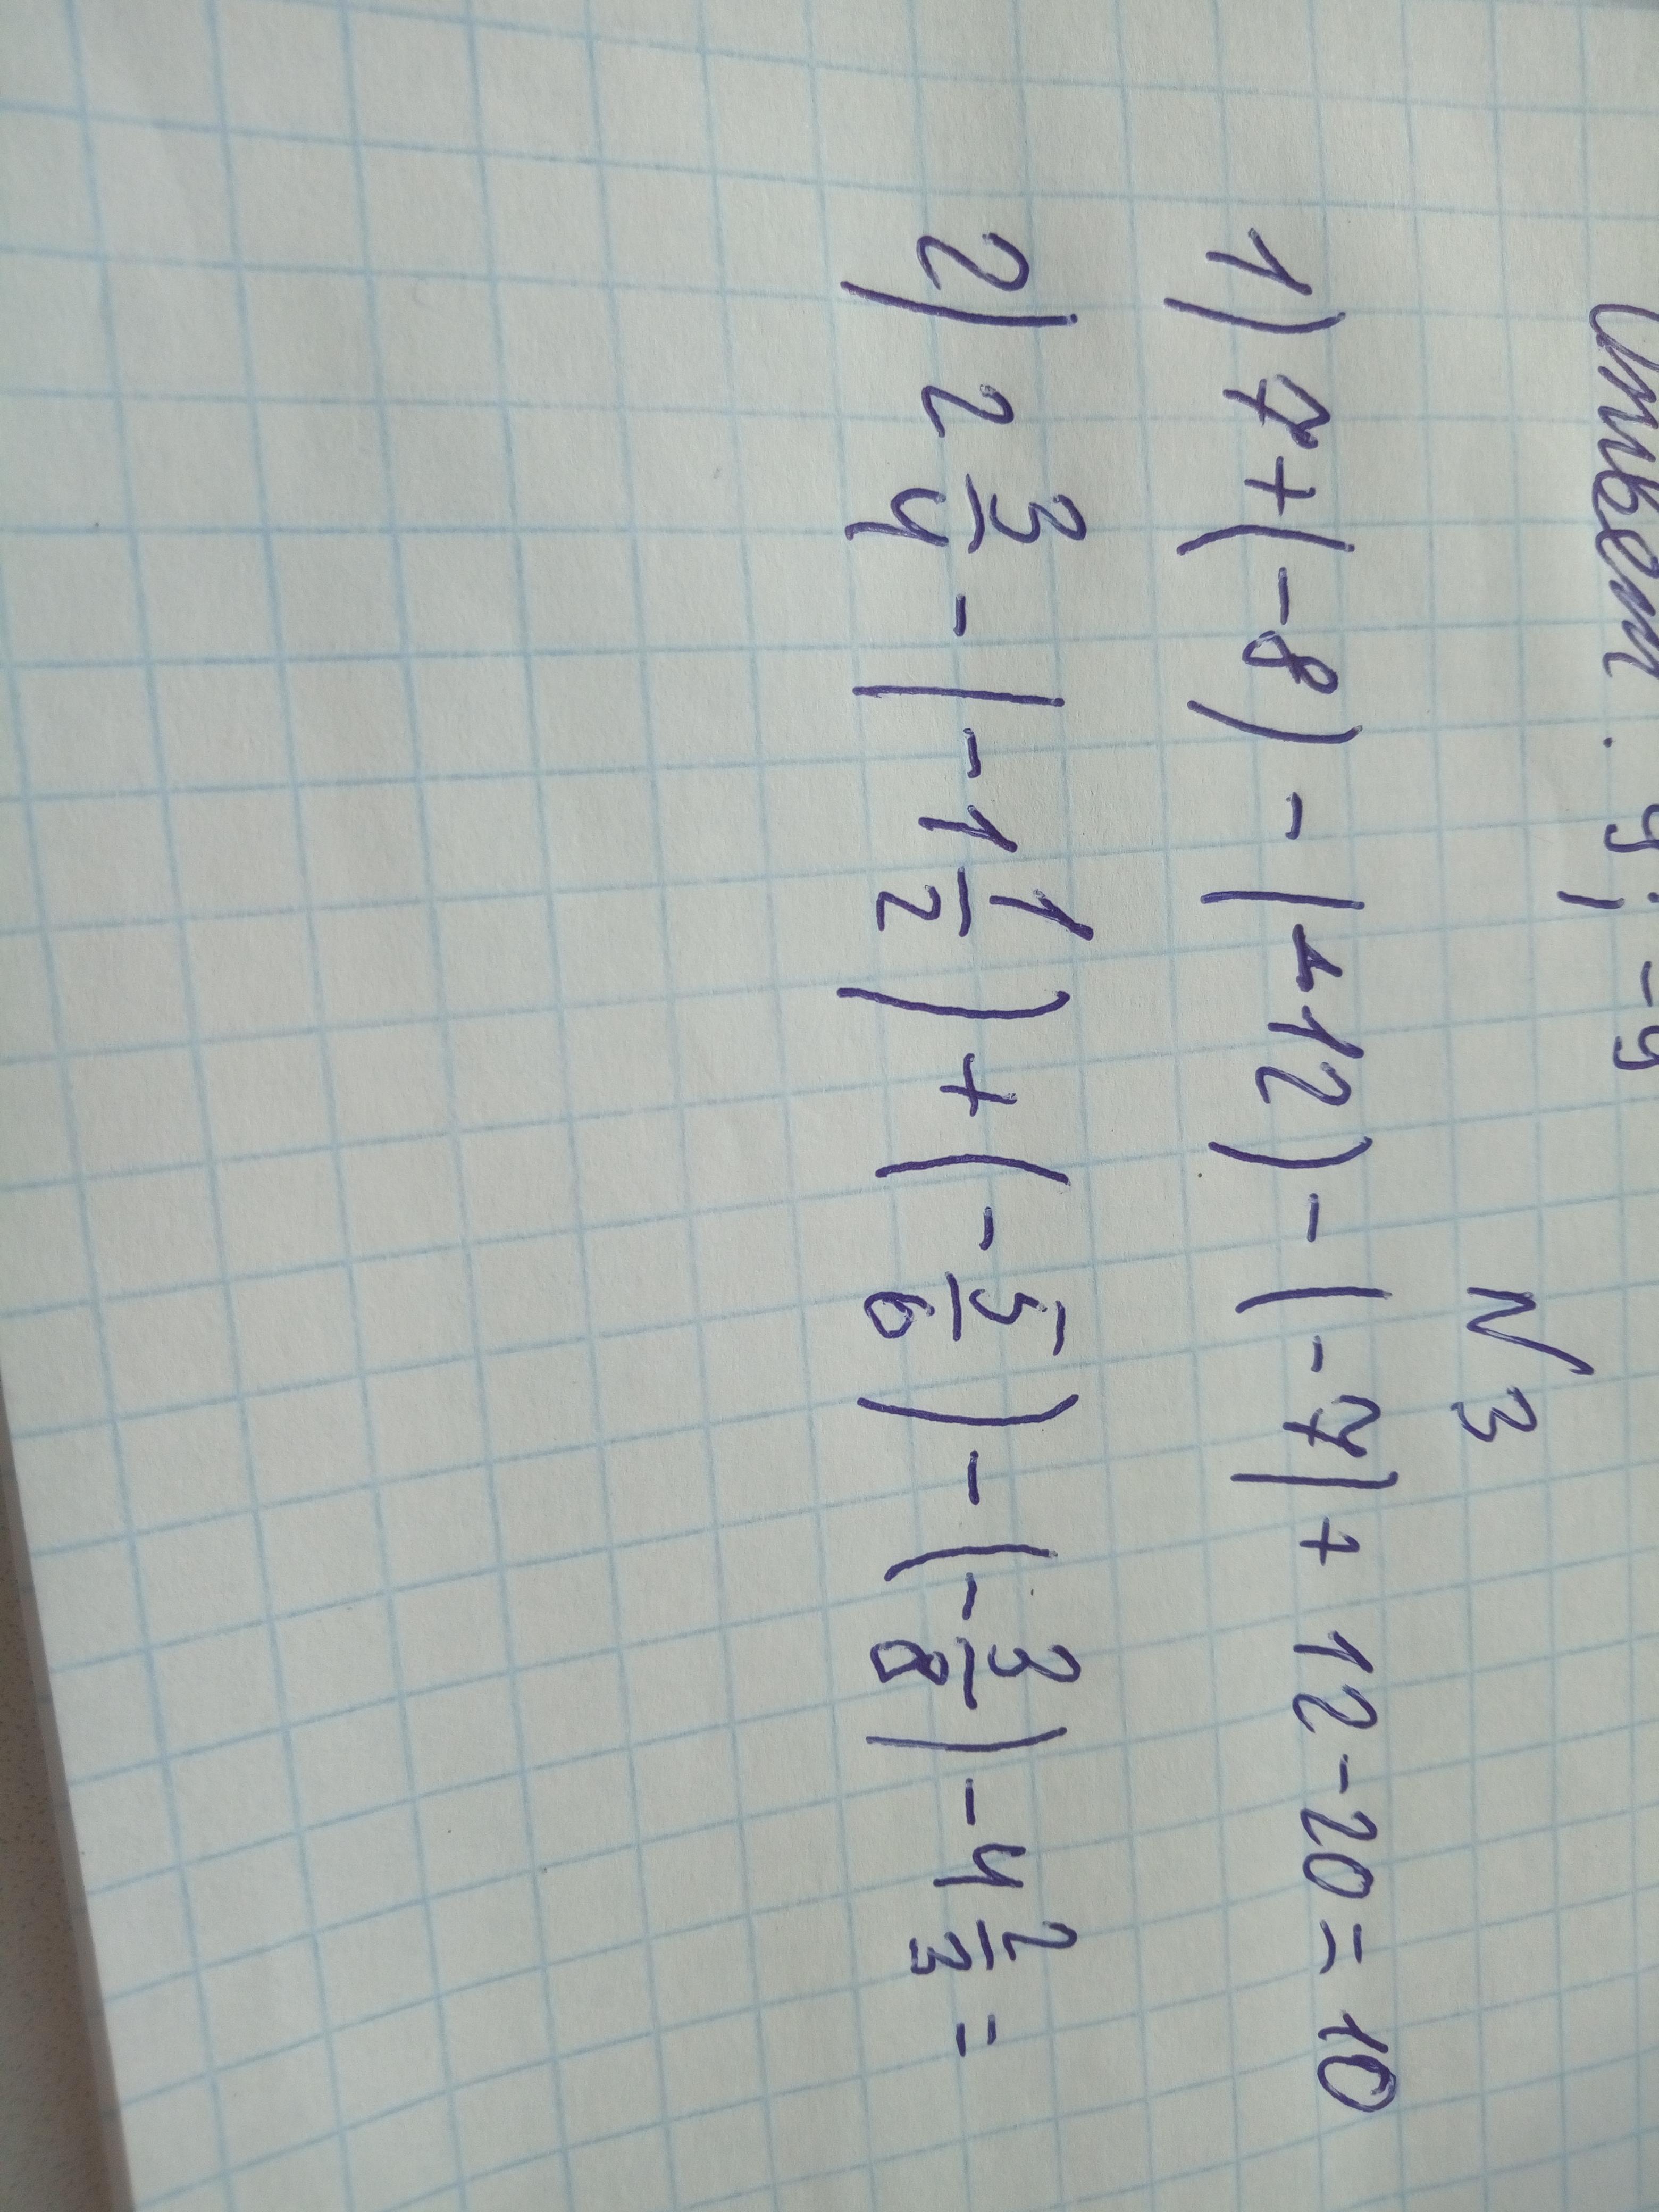 Ответ: y; -y
N 3
1) 7+(-8) - (-12) - (-7) + 12 - 20 = 10
2) 2 3/4 - (-1 1/2) + (-5/6) - (-3/8) - 4 2/3 =